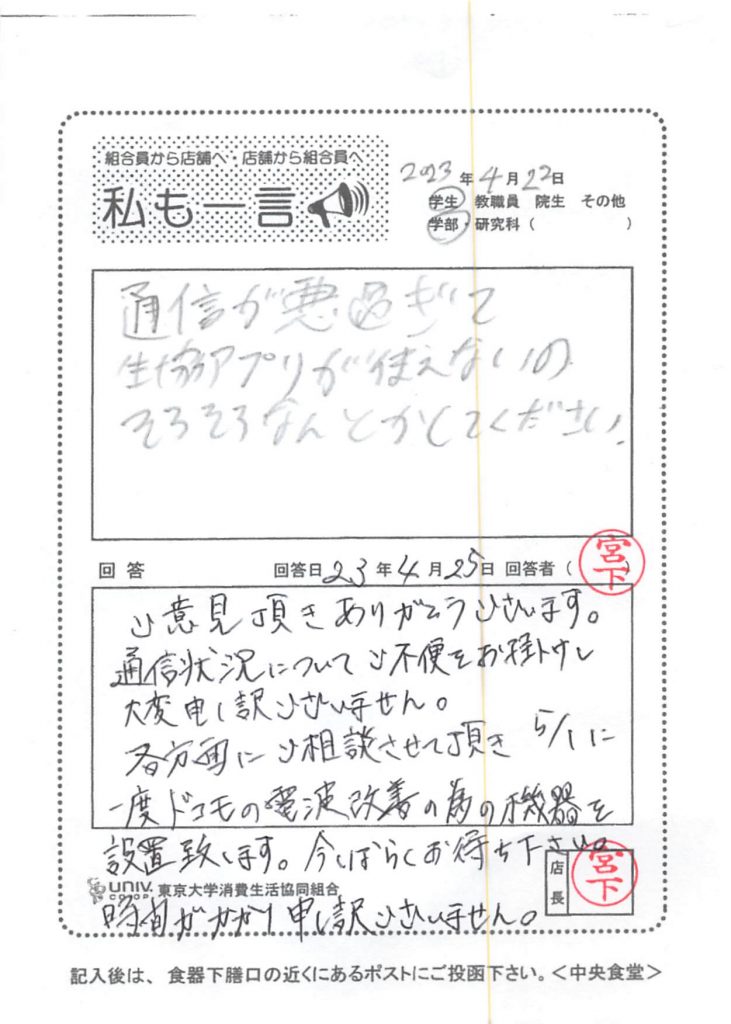 組合員から店舗へ・店舗から組合員へ
私も一言
2023年4月22日
学生 教職員 院生 その他
学部・研究科( )
通信が悪過ぎて
生協アプリが使えないの
そろそろなんとかしてください.
回答 回答日23年4月25日 回答者( )
宮下
ご意見頂きありがとうございます。
通信状況についてご不便をお掛けし
大変申し訳ございません。
各方面にご相談させて頂き 5/1に
一度ドコモの電波改善の為の機器を
設置致します。今しばらくお待ち下さい。
店長 宮下
UNIV. CO-OP 東京大学消費生活協同組合
時間がかかり申し訳ございません。
記入後は、食器下膳口の近くにあるポストにご投函下さい。<中央食堂>